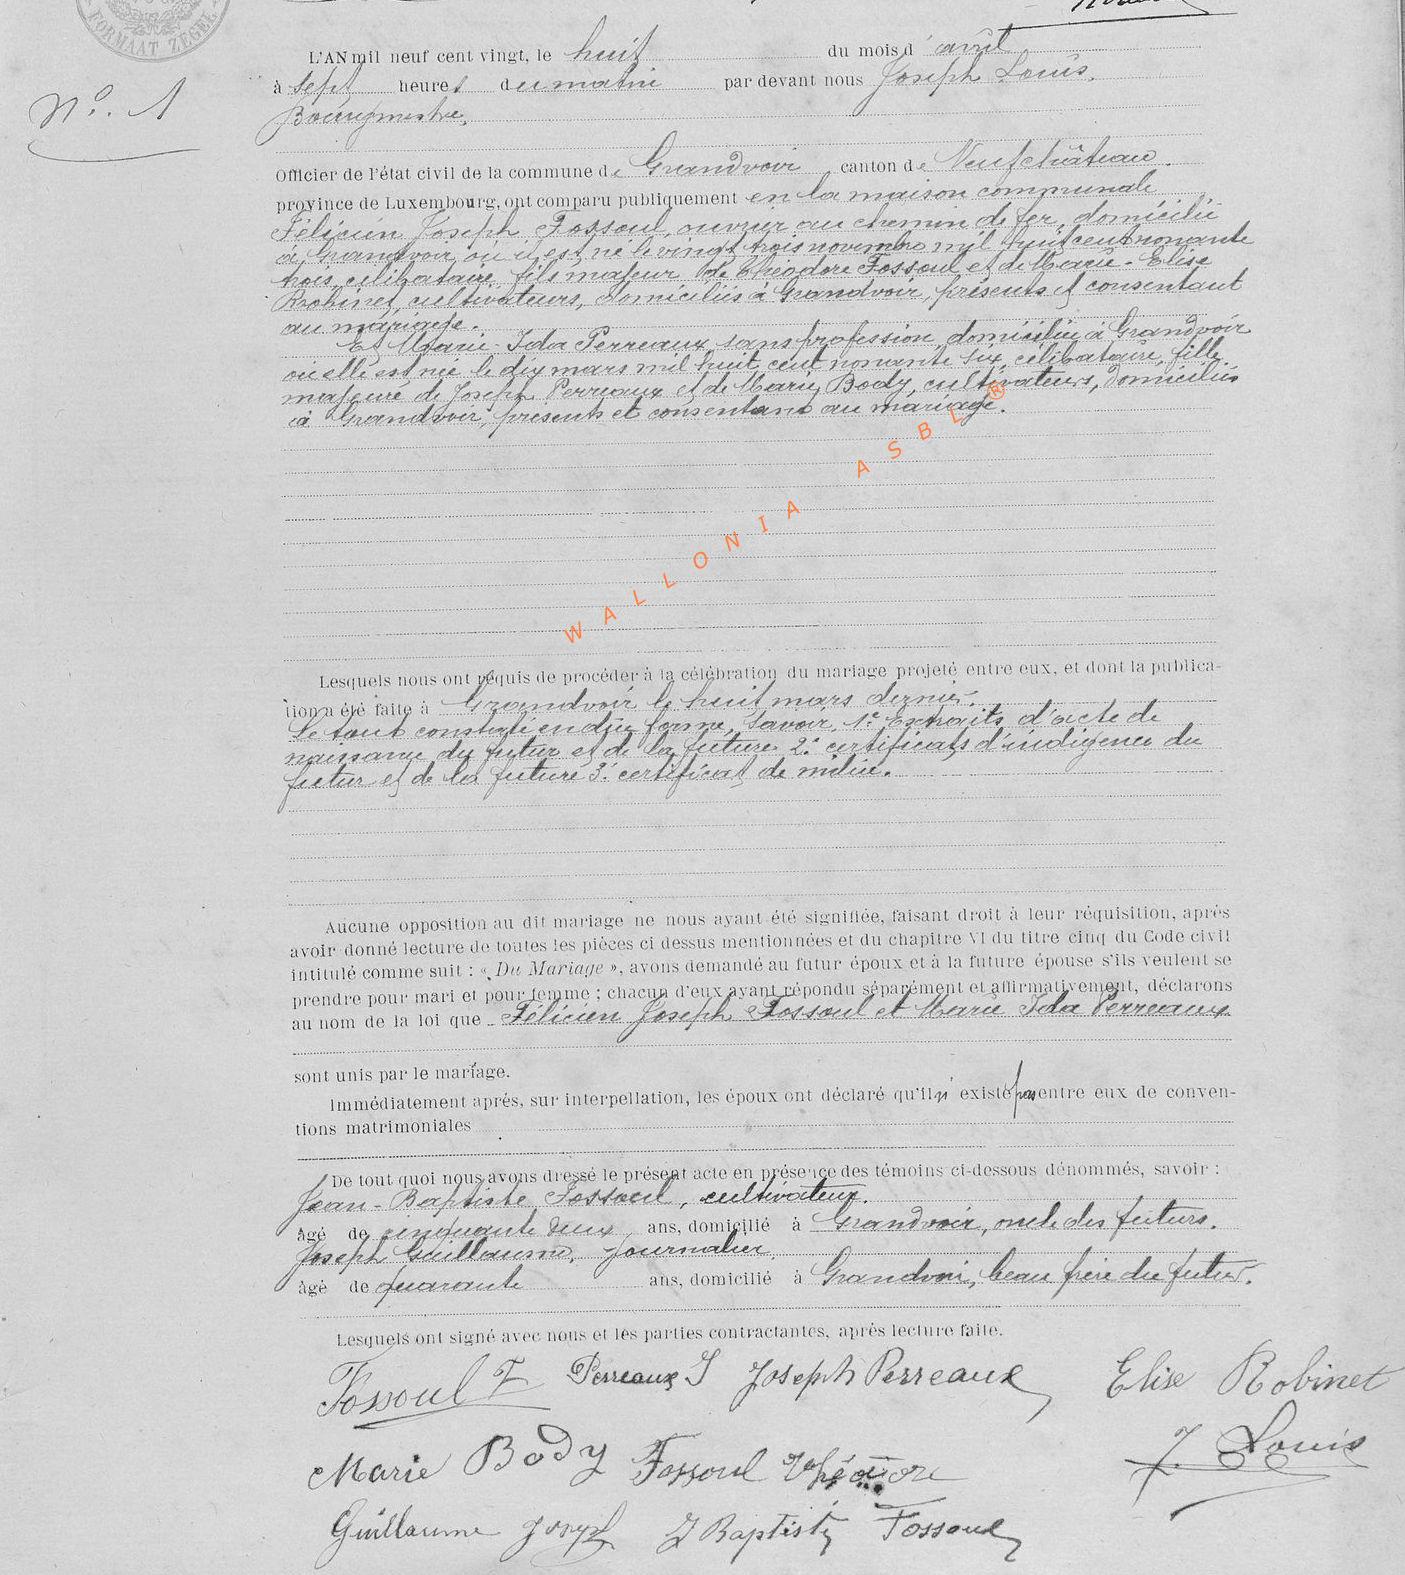 FORMAAT ZEGEL
N°. 1
L'AN mil neuf cent vingt, le huit du mois d' avril
à sept heures du matin par devant nous Joseph Louis,
Bourgmestre,
Officier de l'état civil de la commune de Grandvoir canton de Neufchâteau.
province de Luxembourg, ont comparu publiquement en la maison communale
Félicien Joseph Fossoul, ouvrier au chemin de fer, domicilié
à Grandvoir, où il est né le vingt trois novembre mil huit cent nonante
trois, célibataire, fils majeur de Théodore Fossoul et de Marie-Elise
Robinet, cultivateurs, domiciliés à Grandvoir, présents et consentant
au mariage.
Et Marie-Ida Perreaux, sans profession, domiciliée à Grandvoir
où elle est née le dix mars mil huit cent nonante six, célibataire, fille
majeure de Joseph Perreaux et de Marie Body, cultivateurs, domiciliés
à Grandvoir, présents et consentant au mariage.
WALLONIA ASBL ®
Lesquels nous ont requis de procéder à la célébration du mariage projeté entre eux, et dont la publica-
tion a été faite à Grandvoir le huit mars dernier.
Le tout constaté en due forme, savoir, 1° Extraits d'acte de
naissance du futur et de la future 2° certificats d'indigence du
futur et de la future 3° certificat de milice.
Aucune opposition au dit mariage ne nous ayant été signifiée, faisant droit à leur réquisition, après
avoir donné lecture de toutes les pièces ci dessus mentionnées et du chapitre VI du titre cinq du Code civil
intitulé comme suit : « Du Mariage », avons demandé au futur époux et à la future épouse s'ils veulent se
prendre pour mari et pour femme ; chacun d'eux ayant répondu séparément et affirmativement, déclarons
au nom de la loi que Félicien Joseph Fossoul et Marie Ida Perreaux
sont unis par le mariage.
Immédiatement après, sur interpellation, les époux ont déclaré qu'il n' existe pas entre eux de conven-
tions matrimoniales
De tout quoi nous avons dressé le présent acte en présence des témoins ci-dessous dénommés, savoir :
Jean-Baptiste Fossoul, cultivateur.
âgé de cinquante deux ans, domicilié à Grandvoir, oncle des futurs.
Joseph Guillaume, journalier.
âgé de quarante ans, domicilié à Grandvoir, beau frère du futur.
Lesquels ont signé avec nous et les parties contractantes, après lecture faite.
Fossoul F Perreaux I Joseph Perreaux Elise Robinet
Marie Body Fossoul Théodore J. Louis
Guillaume Joseph J Baptiste Fossoul